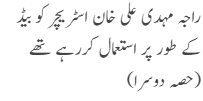 راجہ مہدی علی خان اسٹریچر کو بیڈ
کے طور پر استعمال کررہے تھے
(حصہ دوسرا)